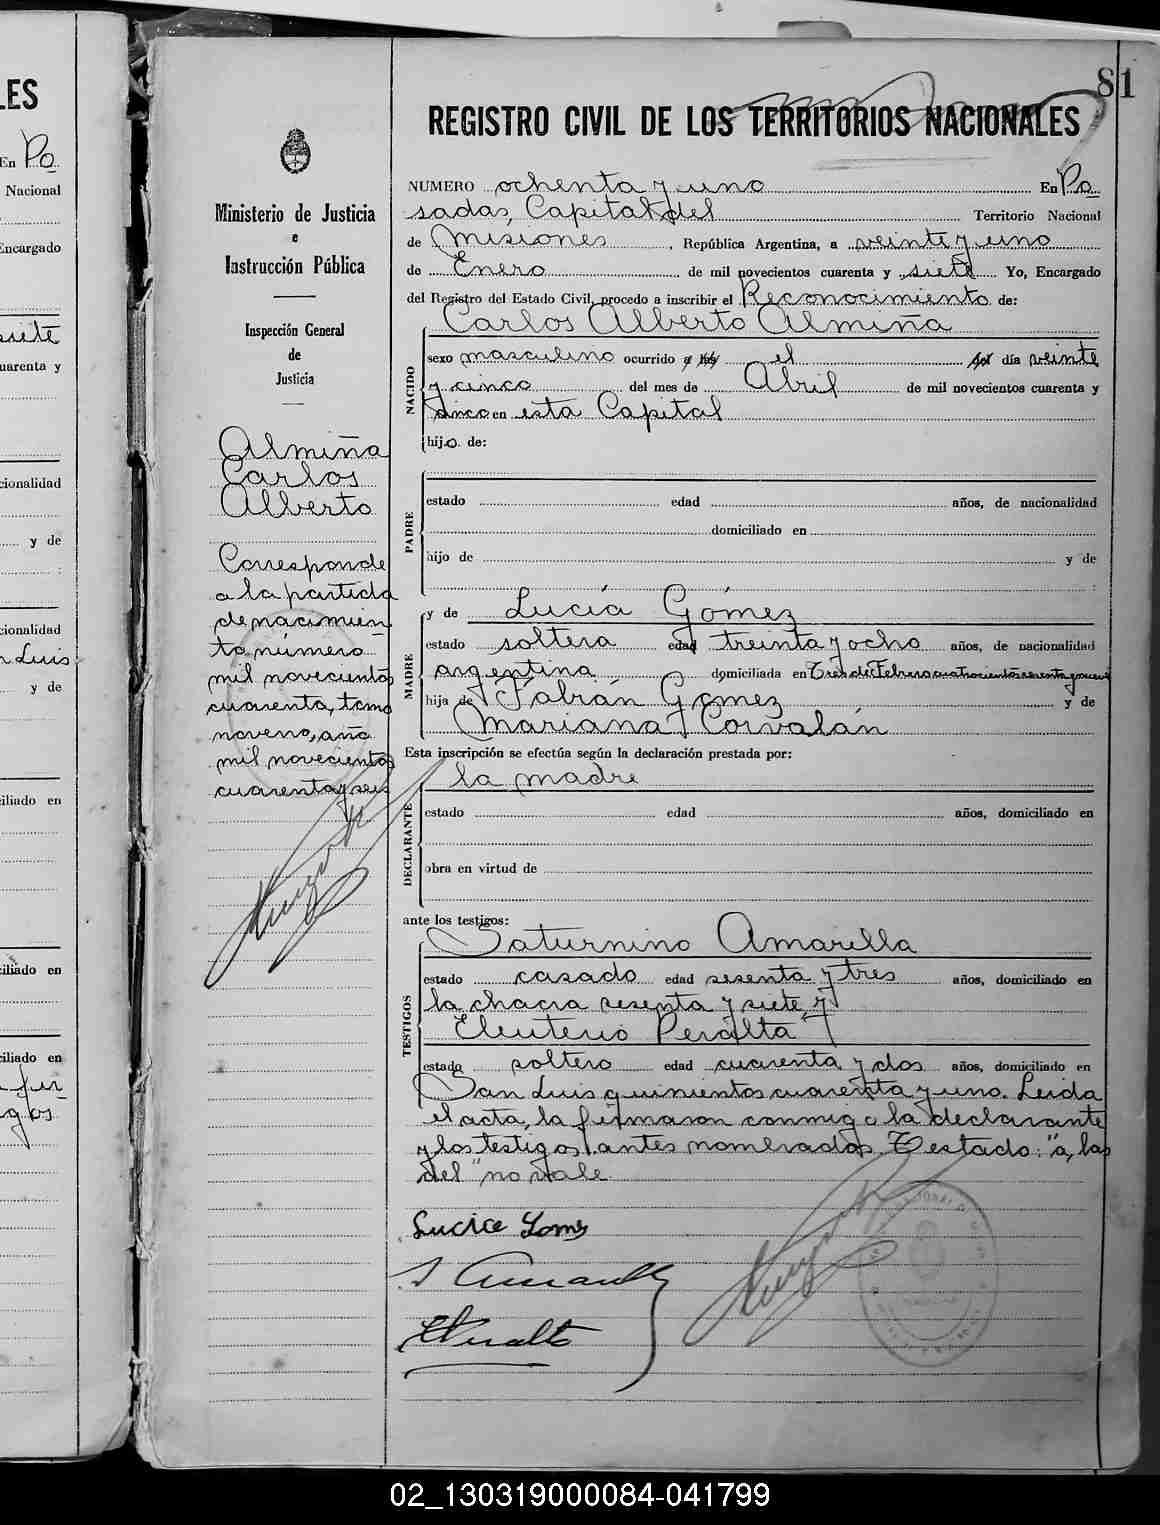 81
REGISTRO CIVIL DE LOS TERRITORIOS NACIONALES
Ministerio de Justicia
e
Instrucción Pública
Inspección General
de
Justicia
Almiña
Carlos
Alberto
Corresponde
a la partida
de nacimien
to número
mil novecientos
cuarenta, tomo
noveno, año
mil novecientos
cuarenta y seis
NUMERO ochenta y uno En Po
sadas, Capital del Territorio Nacional
de Misiones, República Argentina, a veinte y uno
de Enero de mil novecientos cuarenta y siete Yo, Encargado
del Registro del Estado Civil, procedo a inscribir el Reconocimiento de:
Carlos Alberto Almiña
NACIDO
sexo masculino ocurrido a las el del día veinte
y cinco del mes de Abril de mil novecientos cuarenta y
cinco en esta Capital
hijo de:
PADRE
estado edad años, de nacionalidad
domiciliado en
hijo de y de
:
MADRE
y de Lucía Gómez
estado soltera edad treinta y ocho años, de nacionalidad
argentina domiciliada en Tres de Febrero cuatrocientos sesenta y nueve
hija de Fabrán Gomez y de
Mariana Corvalán
Esta inscripción se efectúa según la declaración prestada por:
la madre
DECLARANTE
estado edad años, domiciliado en
obra en virtud de
ante los testigos:
TESTIGOS
Saturnino Amarilla
estado casado edad sesenta y tres años, domiciliado en
la chacra sesenta y siete, y
Eleuterio Peralta
estado soltero edad cuarenta y dos años, domiciliado en
San Luis quinientos cuarenta y uno. Leida
el acta, la firmaron conmigo la declarante
y los testigos antes nombrados. Testado: "a, las
del" no vale
Lucice Gomes
S Amarilla
E Peralta
LES
En Po
Nacional
Encargado
siete
uarenta y
cionalidad
y de
:
cionalidad
n Luis
y de
ciliado en
ciliado en
ciliado en
02_130319000084-041799